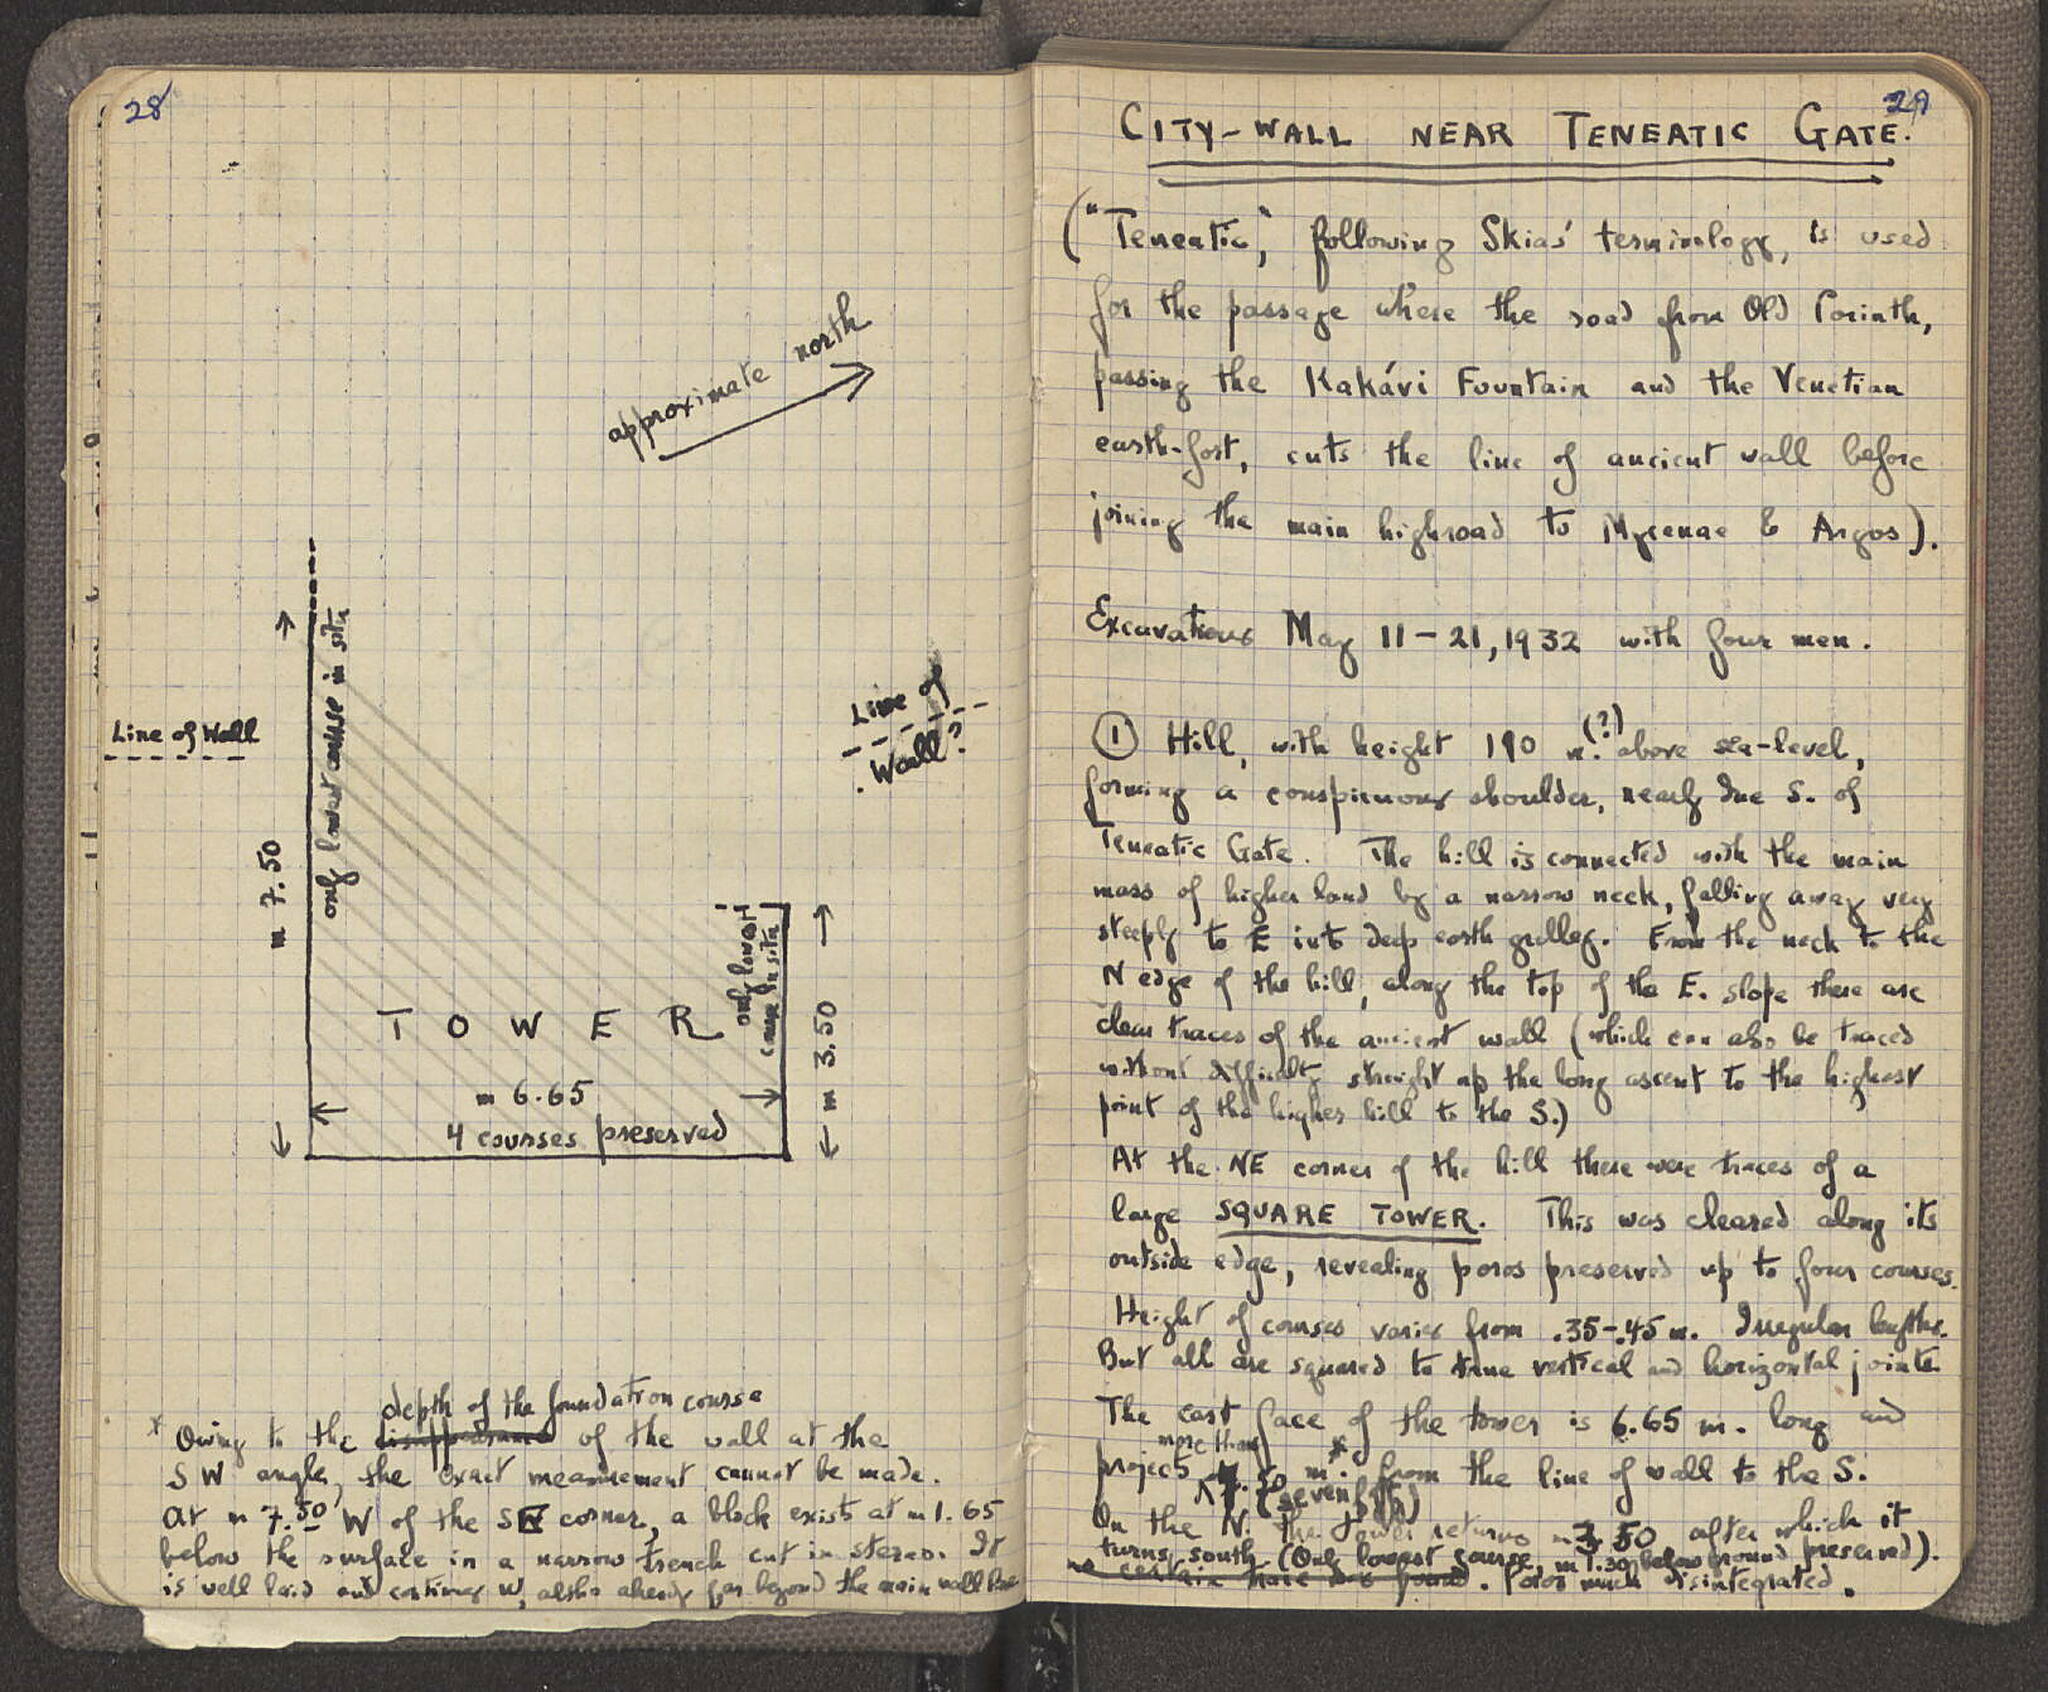 28
approximate north
only lowest course in situ
Line of Wall
Line of
Wall?
m 7.50
only lowest
course in situ
T O W E R
m 3.50
m 6.65
4 courses preserved
depth of the foundation course
* Owing to the disappearance of the wall at the
SW angle, the exact measurement cannot be made.
At m 7.50 W of the SE corner, a block exists at m 1.65
below the surface in a narrow trench cut in stereo. It
is well laid and continues W, altho already far beyond the main wall line
29
CITY-WALL NEAR TENEATIC GATE.
("Teneatic", following Skias' terminology, is used
for the passage where the road from Old Corinth,
passing the Kakávi Fountain and the Venetian
earth-fort, cuts the line of ancient wall before
joining the main highroad to Mycenae & Argos).
Excavations May 11-21, 1932 with four men.
① Hill, with height 190 m.(?) above sea-level,
forming a conspicuous shoulder, nearly due S. of
Teneatic Gate. The hill is connected with the main
mass of higher land by a narrow neck, falling away very
steeply to E into deep earth gulley. From the neck to the
N edge of the hill, along the top of the E. slope there are
clear traces of the ancient wall (which can also be traced
without difficulty straight up the long ascent to the highest
point of the higher hill to the S.)
At the NE corner of the hill there were traces of a
large SQUARE TOWER. This was cleared along its
outside edge, revealing poros preserved up to four courses.
Height of courses varies from .35-.45 m. Irregular lengths.
But all are squared to true vertical and horizontal joints
The east face of the tower is 6.65 m. long and
more than
projects m.* from the line of wall to the S.
7.50 (seven fifty)
On the N. the tower returns m 3.50 after which it
turns south (Only lowest course, m 1.30 below ground preserved).
no certain trace was found. Poros much disintegrated.